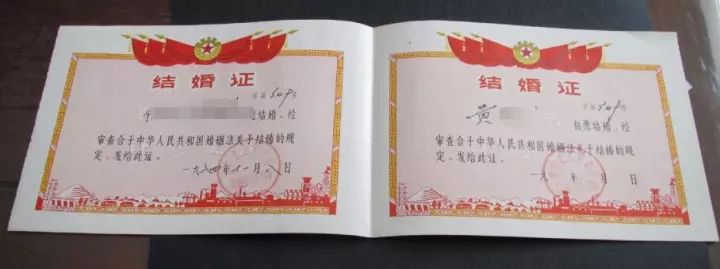 结婚证
字第509号
结婚，经
审查合于中华人民共和国婚姻法关于结婚的规
定，发给此证。
一九七四年十一月八日
结婚证
字第509号
黄
自愿结婚，经
审查合于中华人民共和国婚姻法关于结婚的规
定，发给此证。
一九 年 月 日